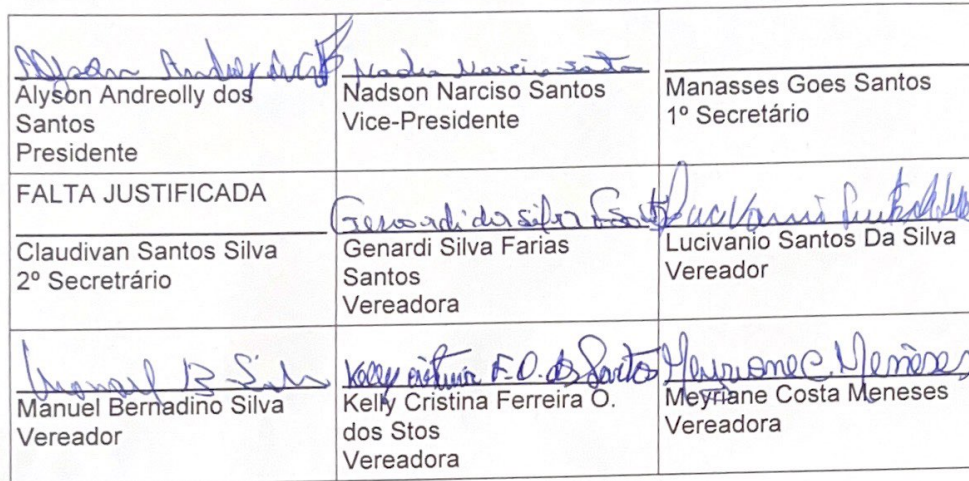 Alyson Andreolly dos
Santos
Presidente
Nadson Narciso Santos
Nadson Narciso Santos
Vice-Presidente
Manasses Goes Santos
1º Secretário
FALTA JUSTIFICADA
Claudivan Santos Silva
2º Secretrário
Genardi da silva Farias
Genardi Silva Farias
Santos
Vereadora
Lucivanio Santos Da Silva
Vereador
Manuel B Silva
Manuel Bernadino Silva
Vereador
Kelly Cristina F.O. dos Santos
Kelly Cristina Ferreira O.
dos Stos
Vereadora
Meyriane C Meneses
Meyriane Costa Meneses
Vereadora